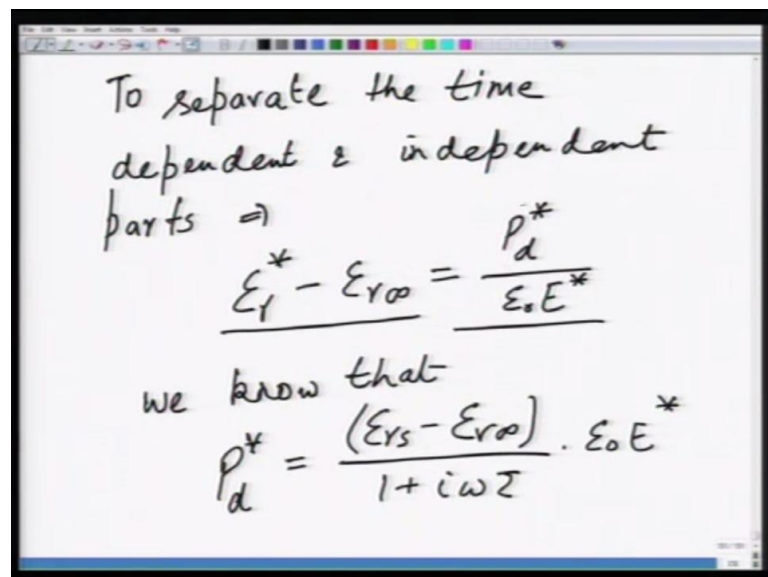 File Edit View Insert Actions Tools Help
To separate the time
dependent & independent
parts ⇒
εᵣ* − εᵣ∞ = P_d* / ε₀E*
we know that
P_d* = (εᵣₛ − εᵣ∞) / (1 + iωτ) . ε₀E*